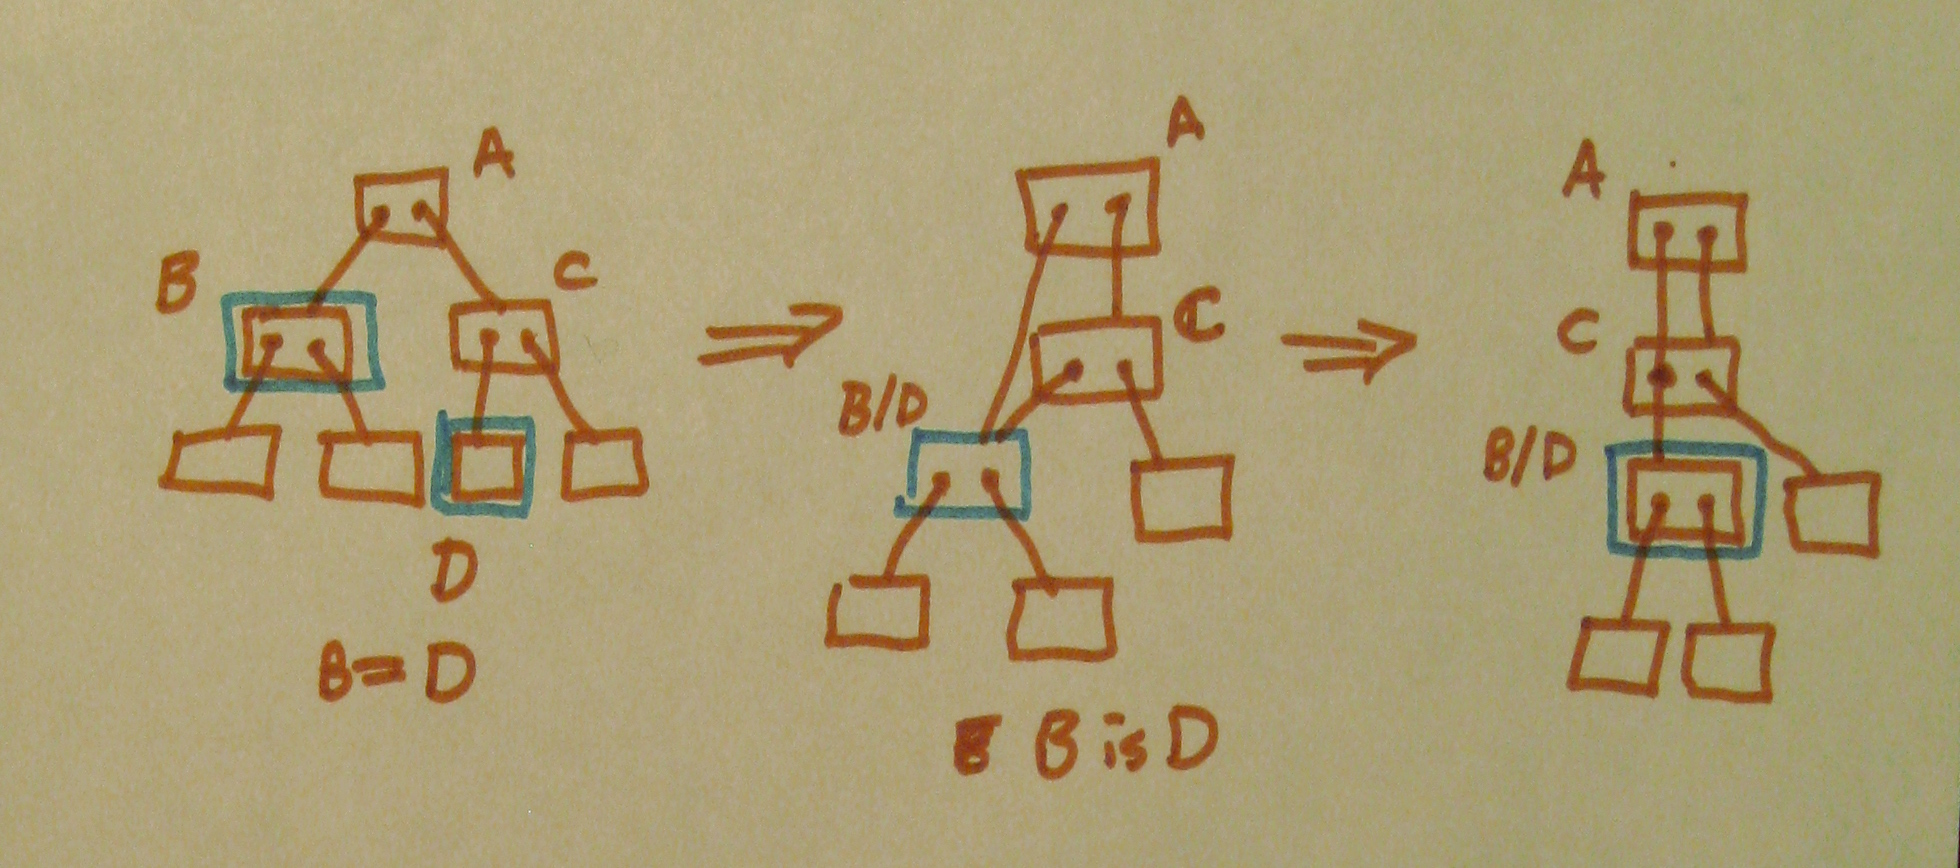 A
B
C
D
B=D
A
C
B/D
B is D
A
C
B/D